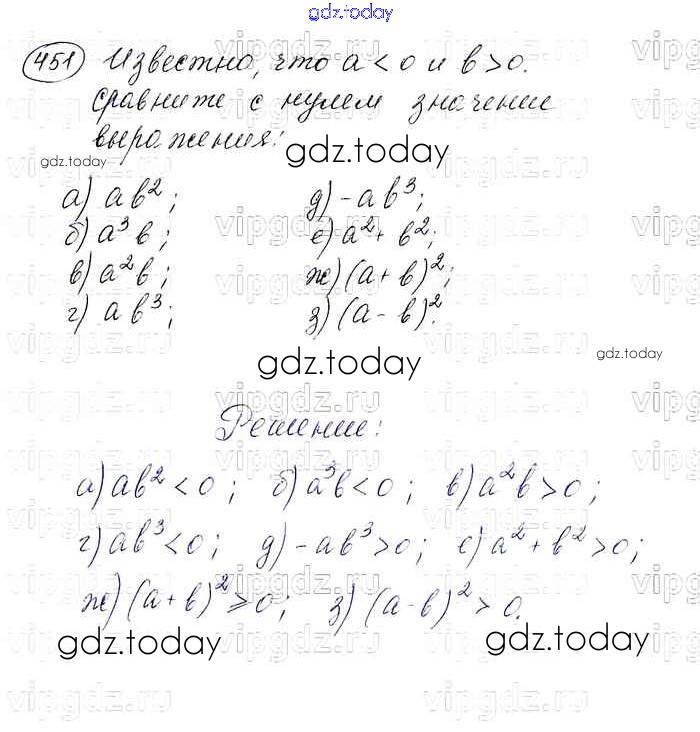 gdz.today
451 Известно, что a < 0 и b > 0.
сравните с нулем значение
выражения:
gdz.today
gdz.today
а) ab²; д) -ab³;
б) a³b; е) a² + b²;
в) a²b; ж) (a + b)²;
г) ab³; з) (a - b)².
gdz.today
gdz.today
Решение:
а) ab² < 0; б) a³b < 0; в) a²b > 0;
г) ab³ < 0; д) -ab³ > 0; е) a² + b² > 0;
ж) (a + b)² ⩾ 0; з) (a - b)² > 0.
gdz.today
gdz.today
vipgdz.ru